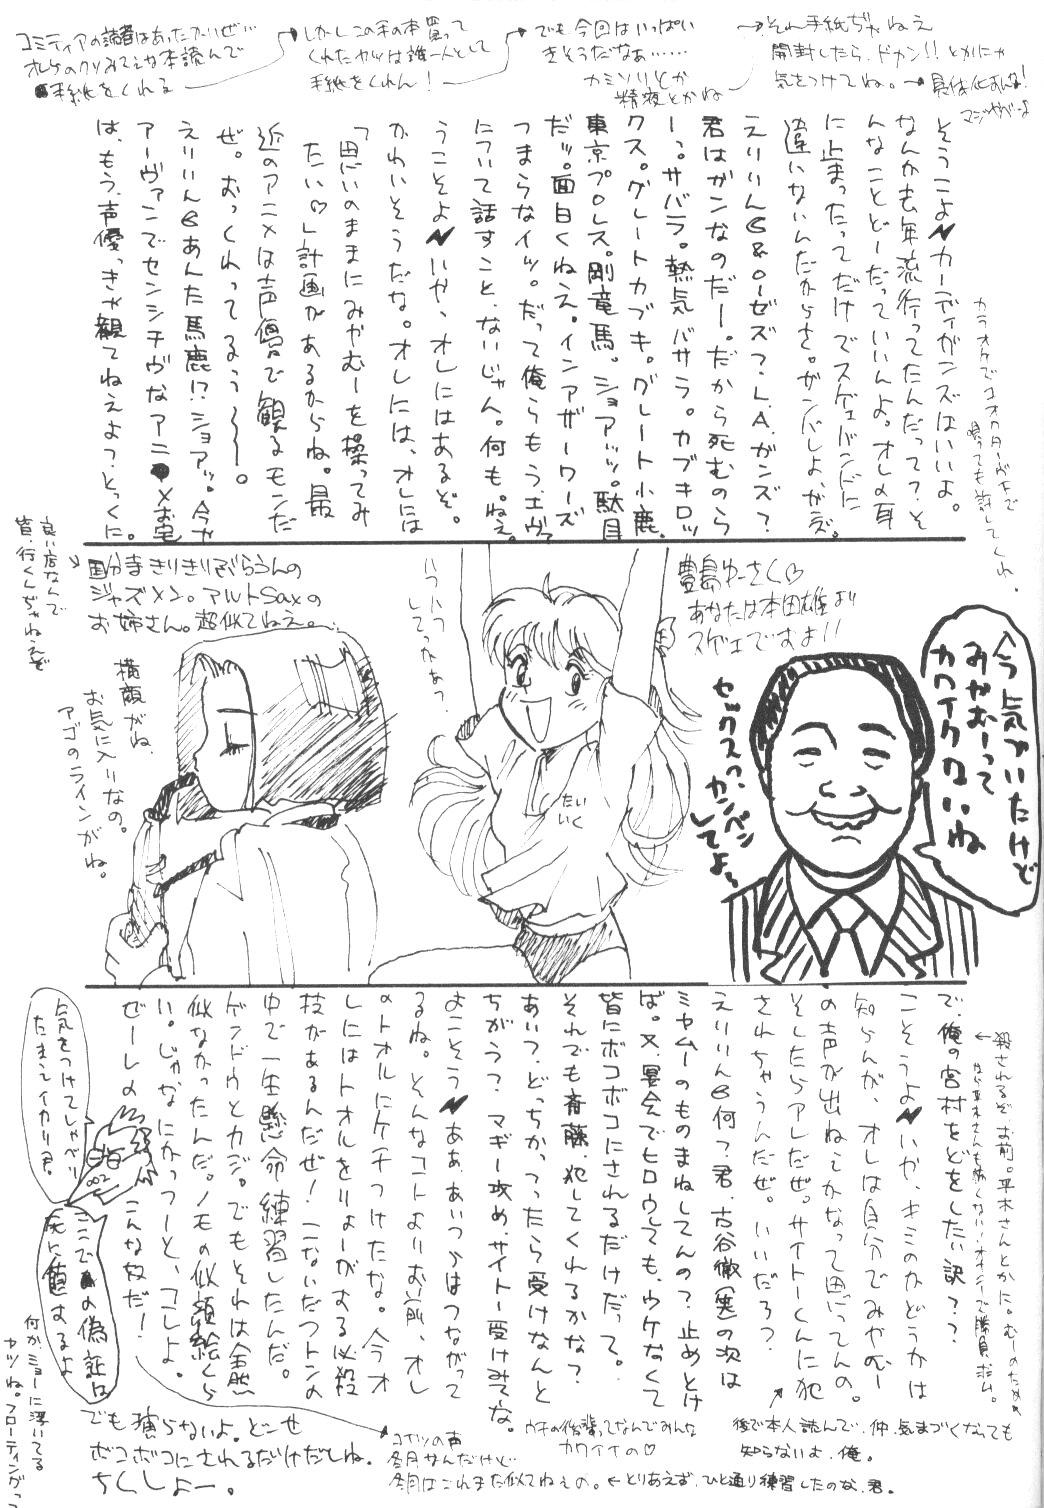 コミティアの読者はあったかいぜ…
オレケのクソみてえな本読んで
手紙をくれる
→しかしこの手の本買って
くれたヤツは誰一人として
手紙をくれん!
→でも今回はいっぱい
きそうだなあ……
カミソリとか
精液とかね
→それ手紙ぢゃねえ
開封したら、ドカン!!とかにゃ
気をつけてね。→具体化すんな!
マジやべーよ
そうこよ カーディガンズはいいよ。
なんかも年流行ってたんだって?そ
んなことどーだっていいんよ。オレの耳
に止まったってだけでスゲェバンドに
違いないんだからさ。ガンバしよ、かぶ。
えりりん&ローゼズ?L.A.ガンズ?
君はガンなのだー。だから死むのら
ーっ。サバラ。熱気バサラ。カブキロッ
クス。グレートカブキ。グレート小鹿。
東京プロレス。剛竜馬。ショアッッ。駄目
だッ。面白くねえ。インアザーワーズ
つまらなイッ。だって俺らもう、エヴァ
について話すこと、ないじゃん。何も。ねえ。
うこそよ いや、オレにはあるぞ。
かわいそうだな。オレには、オレには
「思いのままにみやむーを操ってみ
たい♡」計画があるからね。最
近のアニメは声優で観るモンだ
ぜ。おっくれってるぅ〜〜〜。
えりりん あんた馬鹿!?ショアッ。今や
アーヴァンでセンシチヴなアニメお宅
は、もう、声優っきゃ観てねえよっ、とっくに。
カラオケでコオロギ‥
唄っても許してくれ。
良い店なんで
皆、行くんぢゃねえぞ
国分寺きりきりぶらうんの
ジャズメン。アルトSaxの
お姉さん。超似てねえ。
横顔がね、
お気に入りなの。
アゴのラインがね。
いつハつ
してっかあっ
たい
いく
豊島ゆーさく♡
あなたは本田雄より
スゲェですよ!!
セックスっ、カンペン
してよ〜
今気づいたけど
みやむーって
カワイクないね
で、俺の宮村をどをしたい訳??
こそうよ いや、キミのかどうかは
知らんが、オレは自分でみやむー
の声が出ねえかなって思ってんの。
そしたらアレだぜ。サイトーくんに犯
されちゃうんだぜ。いいだろ?
えりりん 何?君、古谷徹(笑)の次は
ミヤムーのものまねしてんの?止めとけ
ば。又、宴会でヒロウしても、ウケなくて
皆にボコボコにされるだけだって。
それでも斎藤、犯してくれるかな?
あいつ、どっちかってったら受けなんと
ちがう?マギー攻め、サイトー受けみてな。
よこそう ああ、あいつらはつながって
るね。そんなコトよりお前、オレ
のトオルにケチつけたな。今うオ
レにはトオルをりょーがする必殺
技があるんだぜ!こないだフトンの
中で一生懸命練習したんだ。
ゲンドウとカジ。でもそれは全然
似なかったんだ。ノモの似顔絵くら
い。じゃなにかっつーと、コレよ。
ぜーレの こんな奴だ!
殺されるぞ、お前。平木さんとかに。むーのためめ
←なら平木さんも怖くない、オイシーで勝負ポム。
気をつけてしゃべり
たまえイカリ君。
ここでの偽証は
死に値するよ
何かミョーに浮いてる
ヤツね。フローティングっ
でも演らないよ。どーせ
ボコボコにされるだけだしね。
ちくしょー。
コイツの声
冬月サンだけど
冬月はこれまた似てねえの。←とりあえず、ひと通り練習したのな、君。
ウチの後輩ってなんでみんな
カワイイの♡
後で本人読んで、仲、気まづくなっても
知らないよ、俺。